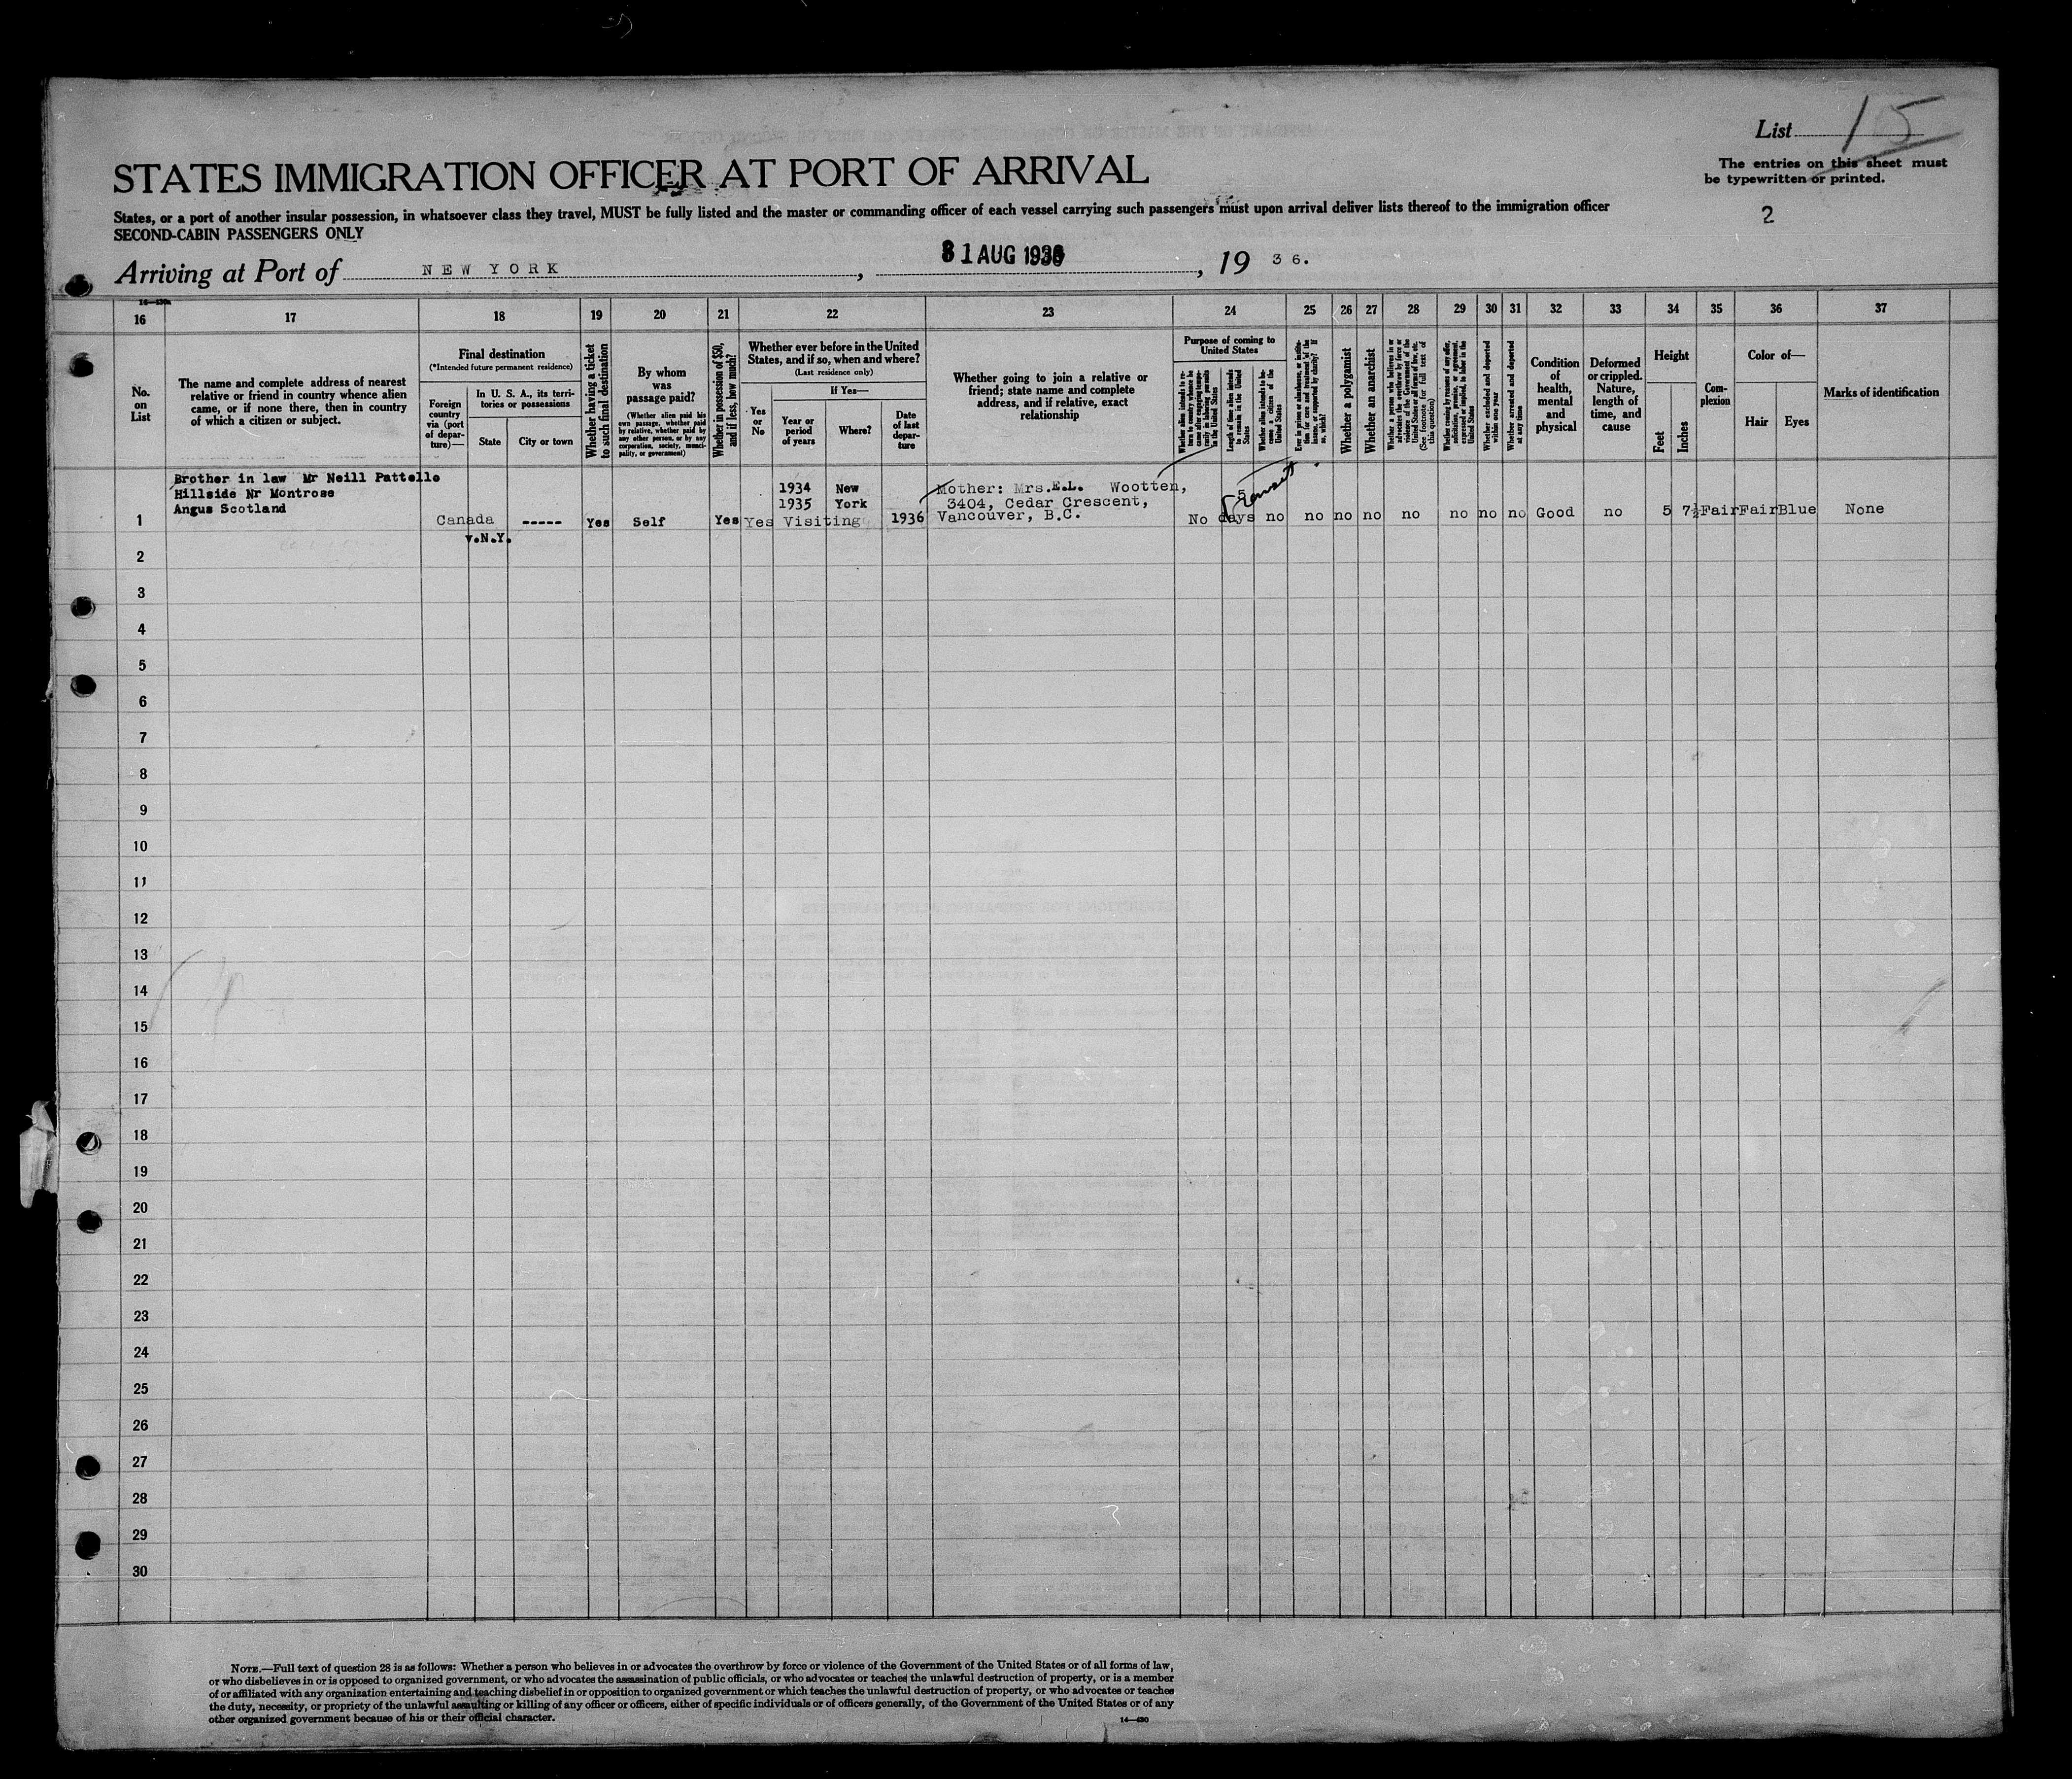 List 15
STATES IMMIGRATION OFFICER AT PORT OF ARRIVAL
The entries on this sheet must
be typewritten or printed.
States, or a port of another insular possession, in whatsoever class they travel, MUST be fully listed and the master or commanding officer of each vessel carrying such passengers must upon arrival deliver lists thereof to the immigration officer
2
SECOND-CABIN PASSENGERS ONLY
Arriving at Port of NEW YORK, 31 AUG 1936, 19 36.
16 17 18 19 20 21 22 23 24 25 26 27 28 29 30 31 32 33 34 35 36 37
No.
on
List
The name and complete address of nearest
relative or friend in country whence alien
came, or if none there, then in country
of which a citizen or subject.
Final destination
(*Intended future permanent residence)
Foreign
country
via (port
of depar-
ture)—
In U. S. A., its terri-
tories or possessions
State
City or town
Whether having a ticket
to such final destination
By whom
was
passage paid?
(Whether alien paid his
own passage, whether paid
by relative, whether paid by
any other person, or by any
corporation, society, munici-
pality, or government)
Whether in possession of $50,
and if less, how much?
Whether ever before in the United
States, and if so, when and where?
(Last residence only)
Yes
or
No
If Yes—
Year or
period
of years
Where?
Date
of last
depar-
ture
Whether going to join a relative or
friend; state name and complete
address, and if relative, exact
relationship
Purpose of coming to
United States
Whether alien intends to re-
turn to country whence he
came after engaging tempo-
rarily in laboring pursuits
in the United States
Length of time alien intends
to remain in the United
States
Whether alien intends to be-
come a citizen of the
United States
Ever in prison or almshouse, or institu-
tion for care and treatment of the
insane, or supported by charity? If
so, which?
Whether a polygamist
Whether an anarchist
Whether a person who believes in or
advocates the overthrow by force or
violence of the Government of the
United States or all forms of law, etc.
(See footnote for full text of
this question)
Whether coming by reason of any offer,
solicitation, promise, or agreement,
expressed or implied, to labor in the
United States
Whether excluded and deported
within one year
Whether arrested and deported
at any time
Condition
of
health,
mental
and
physical
Deformed
or crippled.
Nature,
length of
time, and
cause
Height
Feet
Inches
Com-
plexion
Color of—
Hair
Eyes
Marks of identification
Brother in law Mr Neill Pattello
Hillside Nr Montrose
Angus Scotland
1 Canada
v.N.Y.
-----
Yes
Self
Yes
Yes
1934 New
1935 York
Visiting
1936
Mother: Mrs.E.L. Wootten,
3404, Cedar Crescent,
Vancouver, B.C.
No
5
days
Transit
no no no no no no no no Good no 5 7½ Fair Fair Blue None
2
3
4
5
6
7
8
9
10
11
12
13
14
15
16
17
18
19
20
21
22
23
24
25
26
27
28
29
30
NOTE.—Full text of question 28 is as follows: Whether a person who believes in or advocates the overthrow by force or violence of the Government of the United States or of all forms of law,
or who disbelieves in or is opposed to organized government, or who advocates the assassination of public officials, or who advocates or teaches the unlawful destruction of property, or is a member
of or affiliated with any organization entertaining and teaching disbelief in or opposition to organized government or which teaches the unlawful destruction of property, or who advocates or teaches
the duty, necessity, or propriety of the unlawful assaulting or killing of any officer or officers, either of specific individuals or of officers generally, of the Government of the United States or of any
other organized government because of his or their official character.
14—430